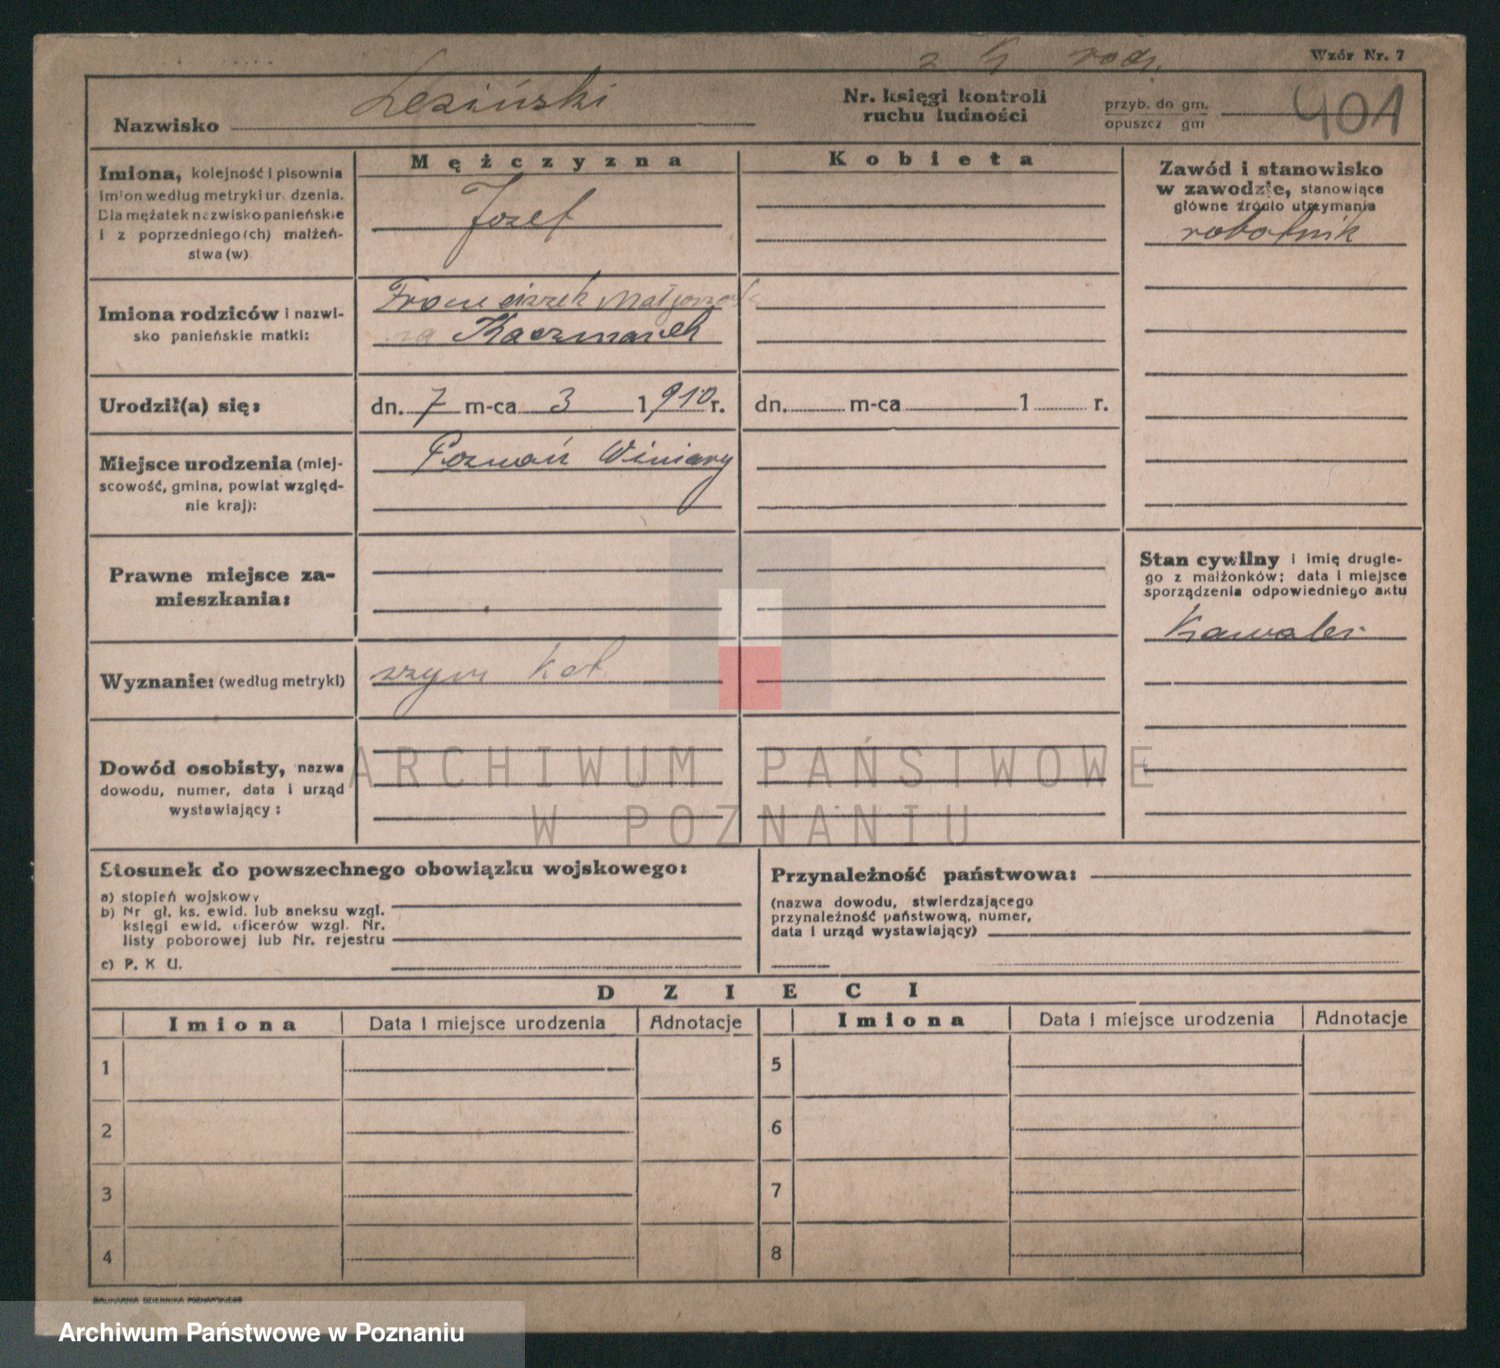 z rodz.
Wzór Nr. 7
Nazwisko Leziński
Nr. księgi kontroli
ruchu ludności
przyb. do gm.
opuszcz gm
401
Imiona, kolejność i pisownia
imion według metryki ur. dzenia.
Dla mężatek nazwisko panieńskie
i z poprzedniego(ch) małżeń-
stwa(w)
Mężczyzna
Józef
Kobieta
Zawód i stanowisko
w zawodzie, stanowiące
główne źródło utrzymania
robotnik
Imiona rodziców i nazwi-
sko panieńskie matki:
Franciszek Małgorzata
Kaczmarek
Urodził(a) się:
dn. 7 m-ca 3 1910 r.
dn. m-ca 1 r.
Miejsce urodzenia (miej-
scowość, gmina, powiat względ-
nie kraj):
Poznań Winiary
Prawne miejsce za-
mieszkania:
Stan cywilny i imię drugie-
go z małżonków; data i miejsce
sporządzenia odpowiedniego aktu
kawaler
Wyznanie: (według metryki)
rzym kat.
Dowód osobisty, nazwa
dowodu, numer, data i urząd
wystawiający:
ARCHIWUM PAŃSTWOWE
W POZNANIU
Stosunek do powszechnego obowiązku wojskowego:
a) stopień wojskowy
b) Nr gł. ks. ewid. lub aneksu wzgl.
księgi ewid. oficerów wzgl. Nr.
listy poborowej lub Nr. rejestru
c) P. K U.
Przynależność państwowa:
(nazwa dowodu, stwierdzającego
przynależność państwową, numer,
data i urząd wystawiający)
DZIECI
Imiona Data i miejsce urodzenia Adnotacje Imiona Data i miejsce urodzenia Adnotacje
1 5
2 6
3 7
4 8
DRUKARNIA DZIENNIKA POZNAŃSKIEGO
Archiwum Państwowe w Poznaniu